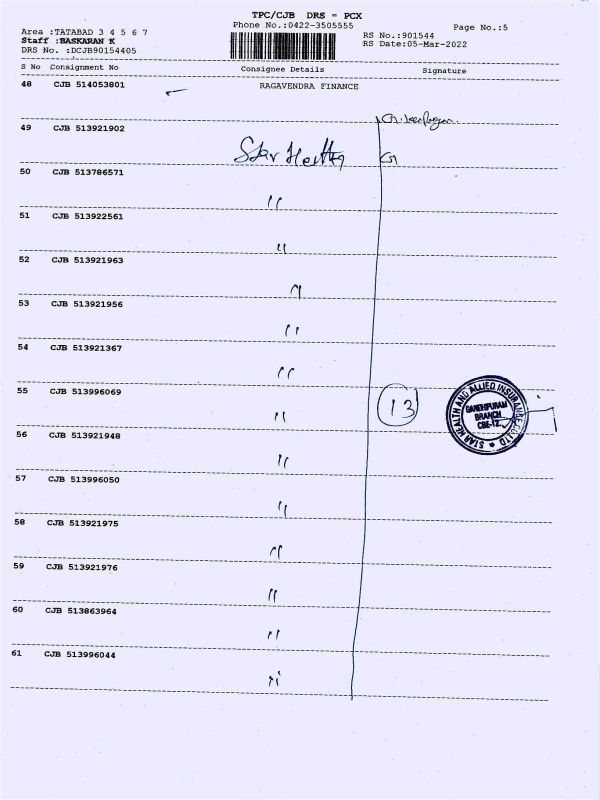 TPC/CJB DRS - PCX
Phone No.:0422-3505555
Page No.:5
Area :TATABAD 3 4 5 6 7
RS No.:901544
Staff :BASKARAN K
RS Date:05-Mar-2022
DRS No. :DCJB90154405
S No Consignment No Consignee Details Signature
48 CJB 514053801 RAGAVENDRA FINANCE
49 CJB 513921902
Star Health
50 CJB 513786571
"
51 CJB 513922561
"
52 CJB 513921963
"
53 CJB 513921956
"
54 CJB 513921367
"
55 CJB 513996069
" 13
STAR HEALTH AND ALLIED INSURANCE CO LTD
GANDHIPURAM
BRANCH
CBE-12.
56 CJB 513921948
"
57 CJB 513996050
"
58 CJB 513921975
"
59 CJB 513921976
"
60 CJB 513863964
"
61 CJB 513996044
"